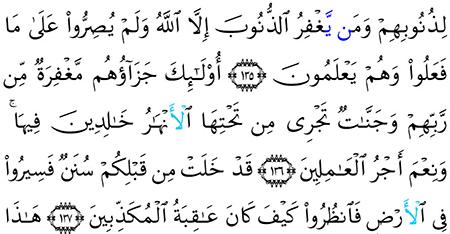 لِذُنُوبِهِمْ وَمَن يَّغْفِرُ الذُّنُوبَ إِلَّا اللَّهُ وَلَمْ يُصِرُّوا۟ عَلَىٰ مَا
فَعَلُوا۟ وَهُمْ يَعْلَمُونَ ۝١٣٥ أُو۟لَـٰٓئِكَ جَزَآؤُهُم مَّغْفِرَةٌ مِّن
رَّبِّهِمْ وَجَنَّـٰتٌ تَجْرِى مِن تَحْتِهَا الْأَنْهَـٰرُ خَـٰلِدِينَ فِيهَا ۚ
وَنِعْمَ أَجْرُ الْعَـٰمِلِينَ ۝١٣٦ قَدْ خَلَتْ مِن قَبْلِكُمْ سُنَنٌ فَسِيرُوا۟
فِى الْأَرْضِ فَانظُرُوا۟ كَيْفَ كَانَ عَـٰقِبَةُ الْمُكَذِّبِينَ ۝١٣٧ هَـٰذَا